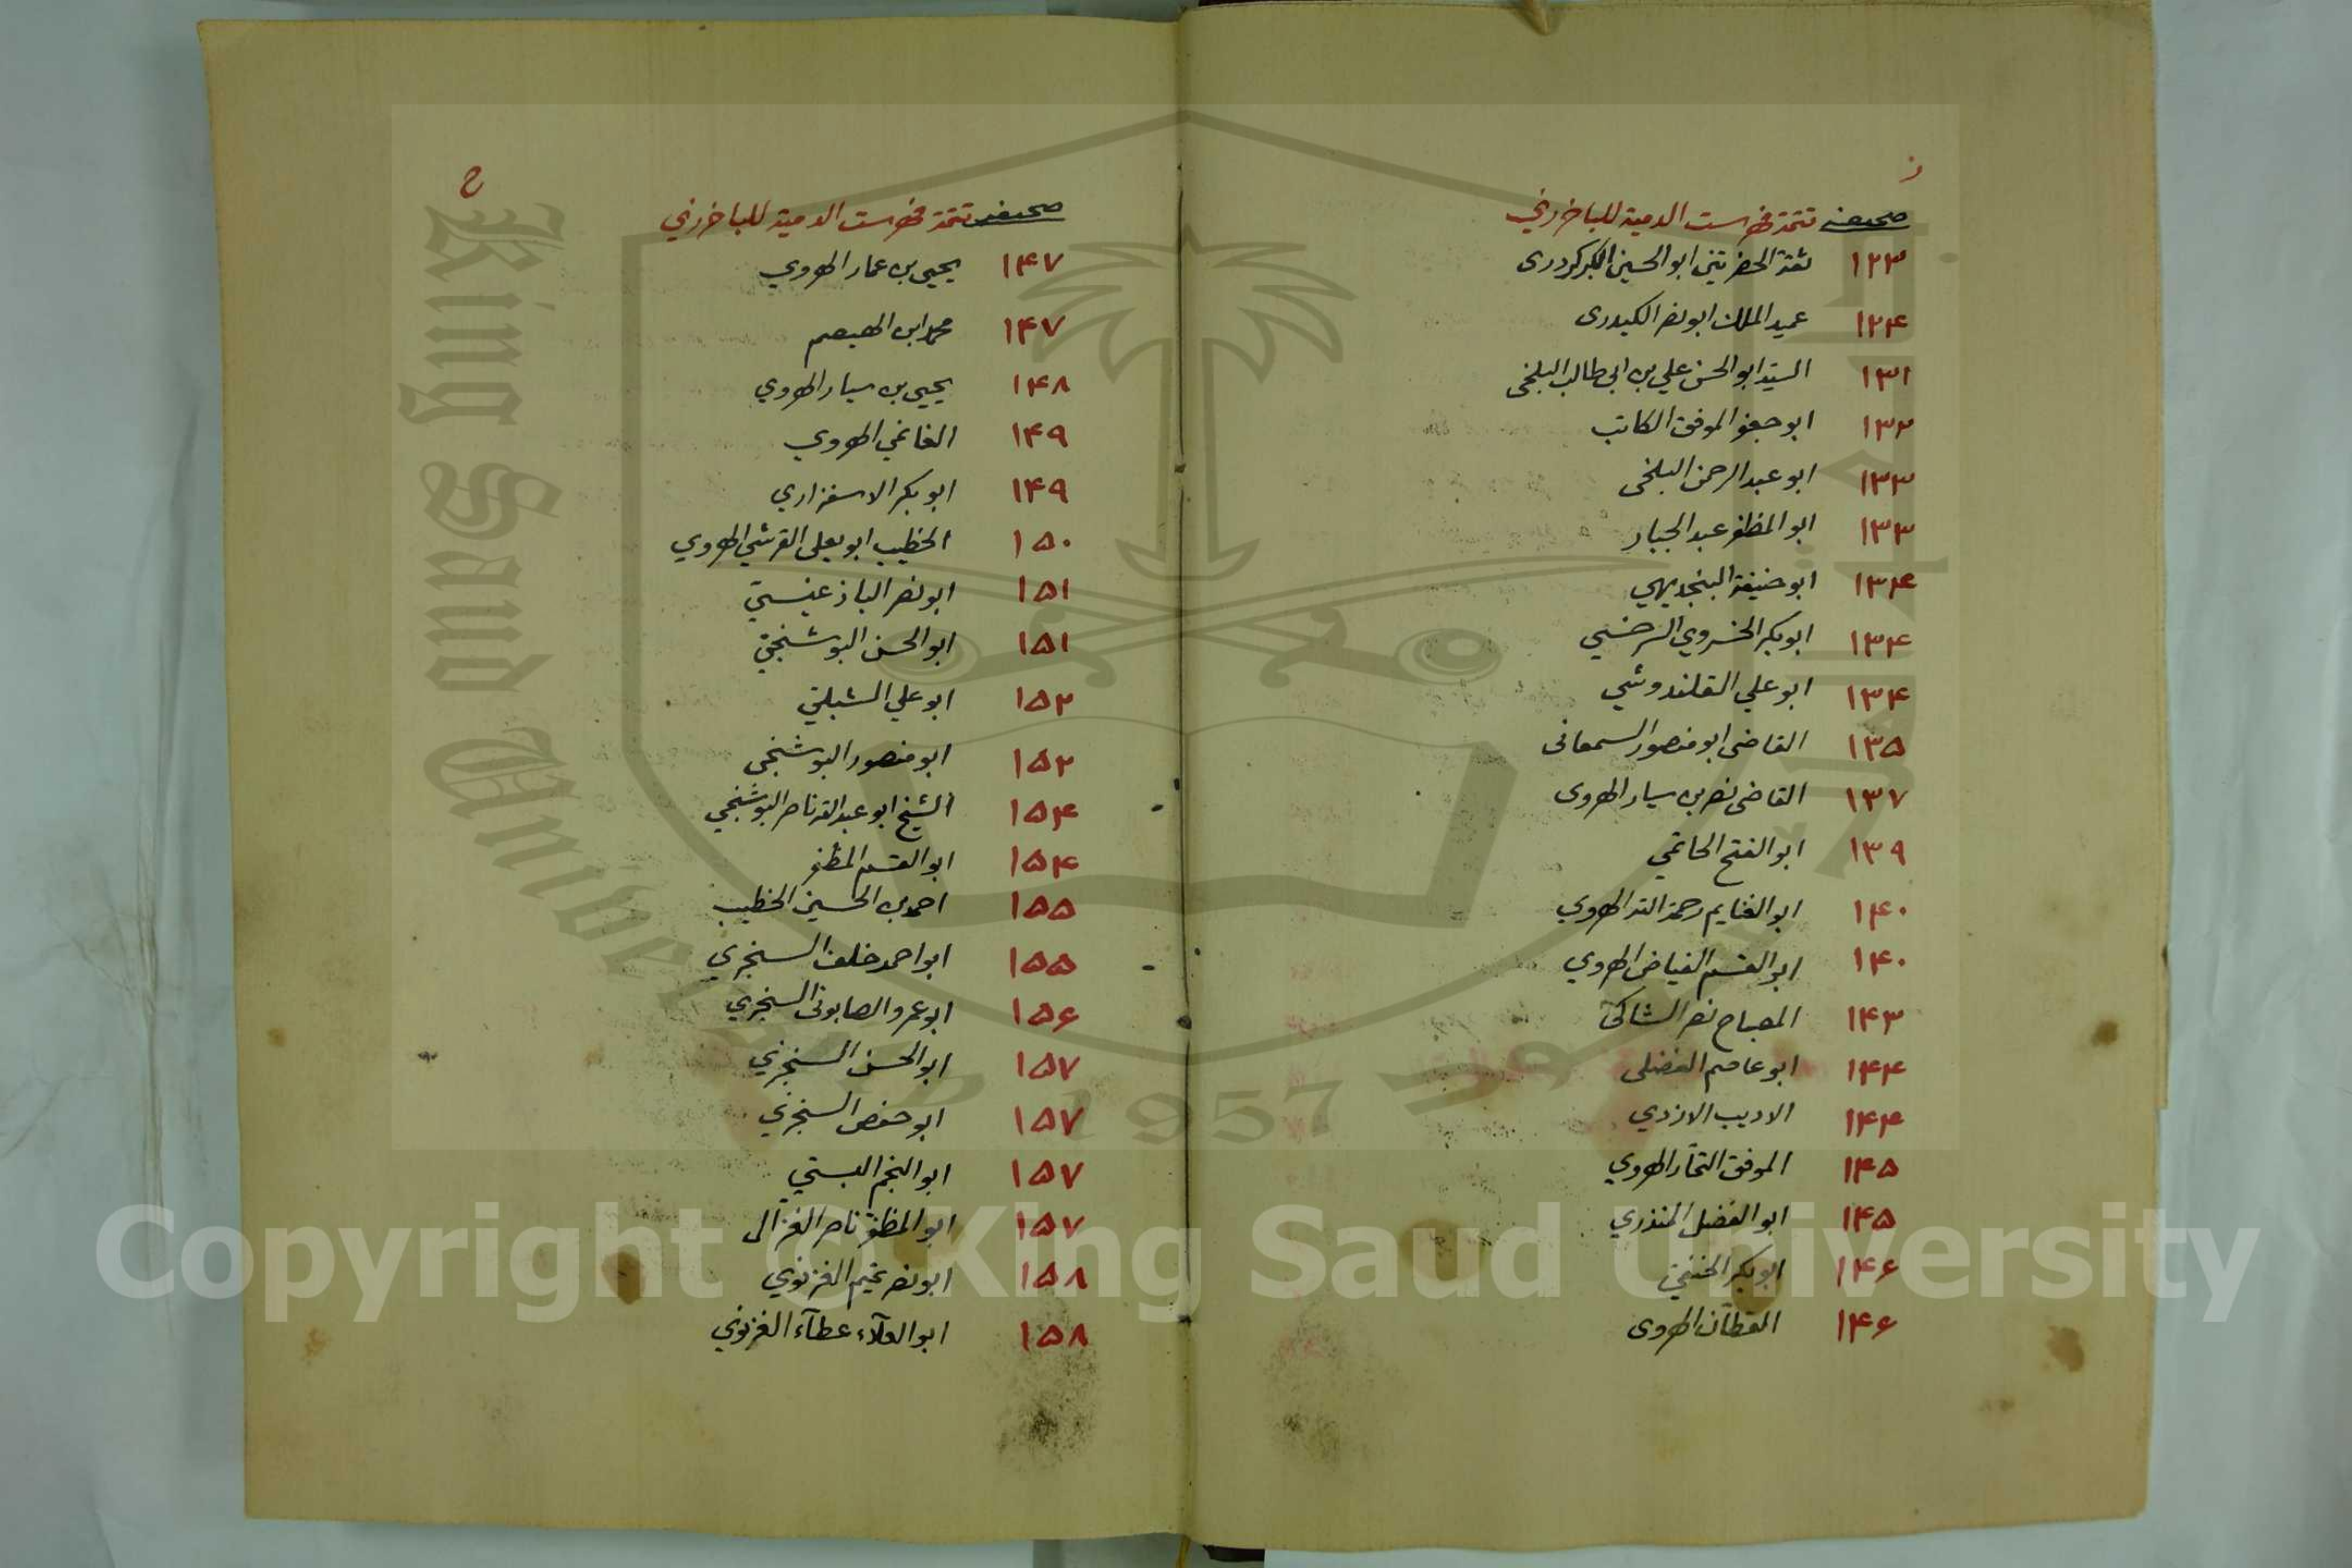 ز
صحيفه تتمة فهرست الدمية للباخرزي
١٢٣ ثقة الحضرتين ابو الحسين الكركردرى
١٢٤ عميد الملك ابو نصر الكيدرى
١٣١ السيد ابو الحسن علي بن ابي طالب البلخى
١٣٢ ابو جعفر الموفق الكاتب
١٣٣ ابو عبد الرحمن البلخى
١٣٣ ابو المظفر عبد الجبار
١٣٤ ابو حنيفة البنجديهي
١٣٤ ابو بكر الخسروي السرخسي
١٣٤ ابو علي القلندوشي
١٣٥ القاضى ابو منصور السمعانى
١٣٧ القاضى نصر بن سيار الهروى
١٣٩ ابو الفتح الحاتمي
١٤٠ ابو الغنايم رحمة الله الهروي
١٤٠ ابو القسم الفياض الهروي
١٤٣ المصباح نصر الشاكى
١٤٤ ابو عاصم الفضلى
١٤٤ الاديب الازدي
١٤٥ الموفق التمار الهروي
١٤٥ ابو الفضل المنذري
١٤٦ ابو بكر الحنفي
١٤٦ القطان الهروى
ح
صحيفه تتمة فهرست الدمية للباخرزي
١٤٧ يحيى بن عمار الهروي
١٤٧ محمد ابن الهيصم
١٤٨ يحيى بن سيار الهروي
١٤٩ الغانمي الهروي
١٤٩ ابو بكر الاسفزاري
١٥٠ الخطيب ابو يعلى القرشي الهروي
١٥١ ابو نصر الباذغيسي
١٥١ ابو الحسن البوشنجي
١٥٢ ابو علي الشبلي
١٥٢ ابو منصور البوشنجى
١٥٤ الشيخ ابو عبد الله ناصر البوشنجي
١٥٤ ابو القسم المظفر
١٥٥ احمد بن الحسين الخطيب
١٥٥ ابو احمد خلف السنجري
١٥٦ ابو عمرو الصابونى السنجري
١٥٧ ابو الحسن السنجزي
١٥٧ ابو حفص السنجزي
١٥٧ ابو النجم البستي
١٥٧ ابو المظفر ناصر الغزالى
١٥٨ ابو نصر تميم الغزنوي
١٥٨ ابو العلاء عطاء الغزنوي
King Saud University
1957
Copyright © King Saud University